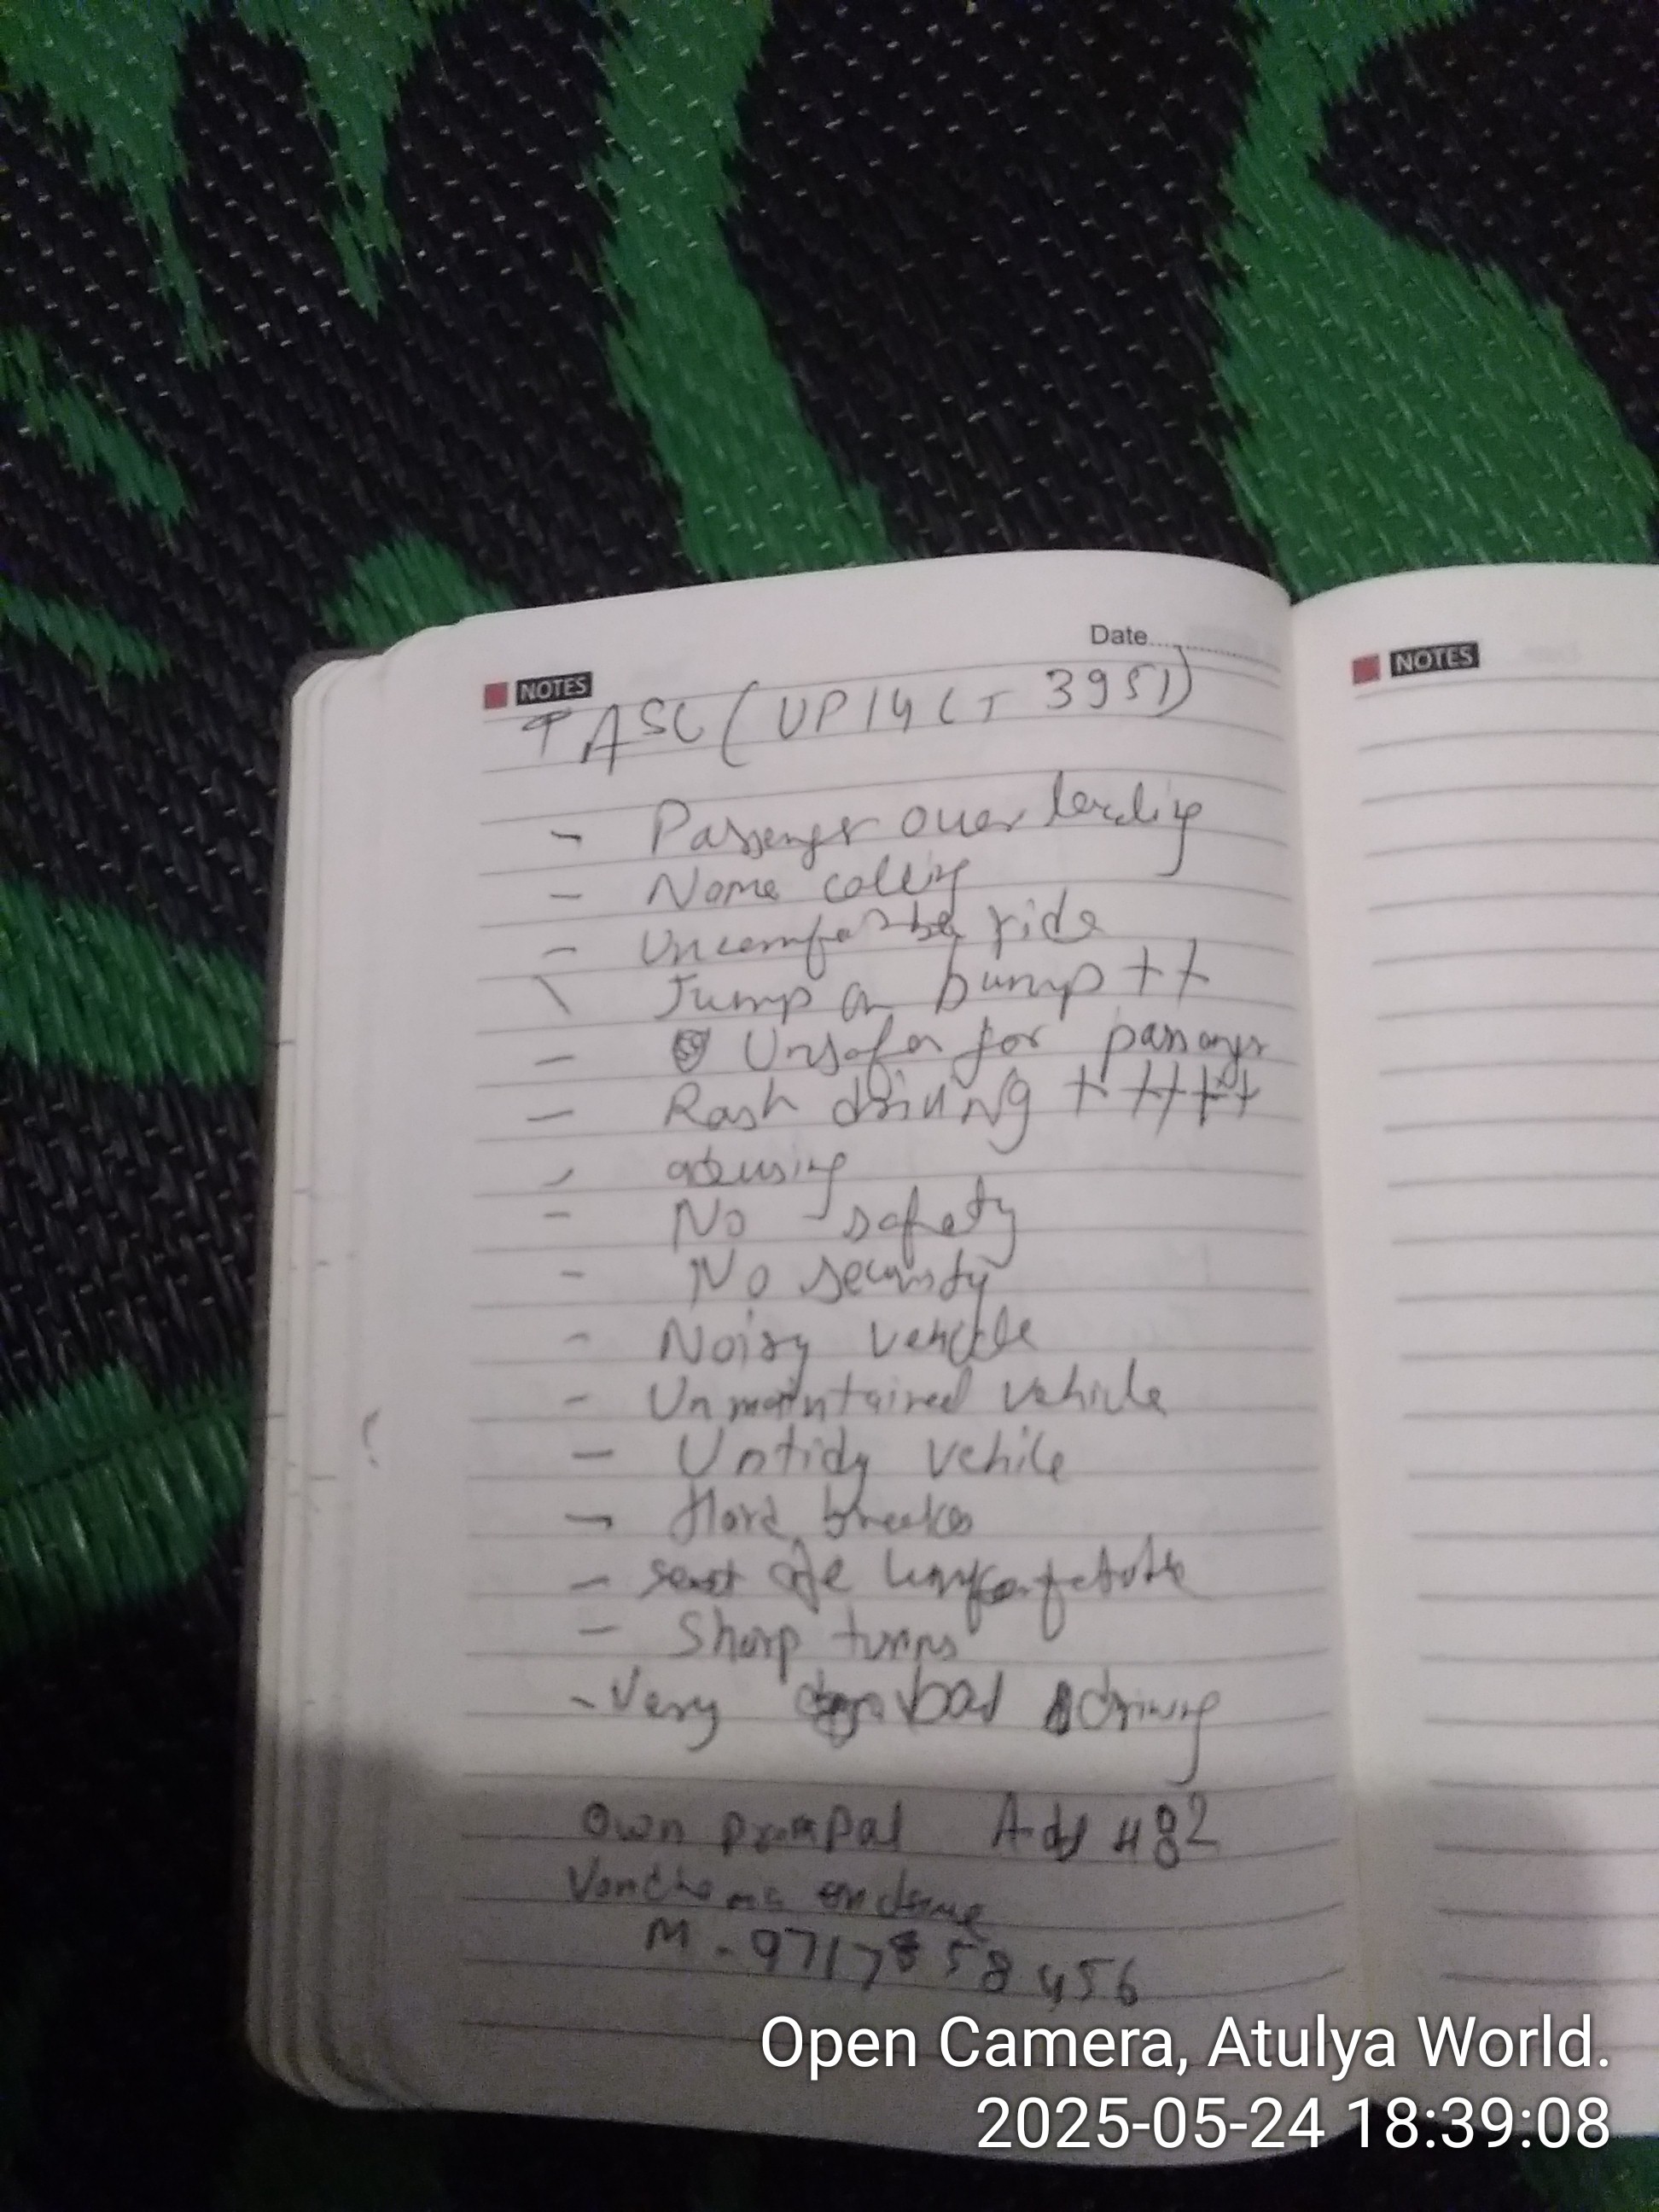 Date..................
NOTES
NOTES
PASC (UP14CT 3951)
- Passenger over loading
- Name calling
- Uncomfortable ride
\ Jump on bump ++
- Unsafer for passanger
- Rash driving +++++
- abusing
- No safety
- No security
- Noisy vehicle
- Unmaintained vehicle
- Untidy vehile
- Hard breaks
- seat are
- Sharp turns
- Very bad driving
Own Add 482
M - 9717858456
Open Camera, Atulya World.
2025-05-24 18:39:08